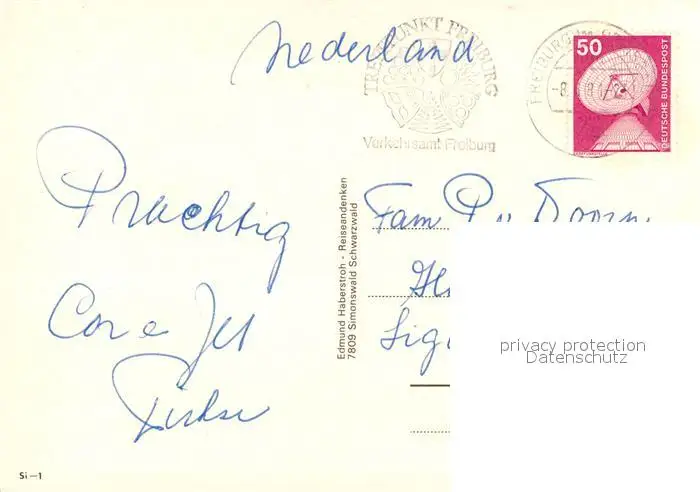 Nederland
TREFFPUNKT FREIBURG
Verkehrsamt Freiburg
FREIBURG IM
-8.
50
DEUTSCHE BUNDESPOST
Prachtig
Cor e Jet
Edmund Haberstroh - Reiseandenken
7809 Simonswald Schwarzwald
Fam
privacy protection
Datenschutz
Si-1